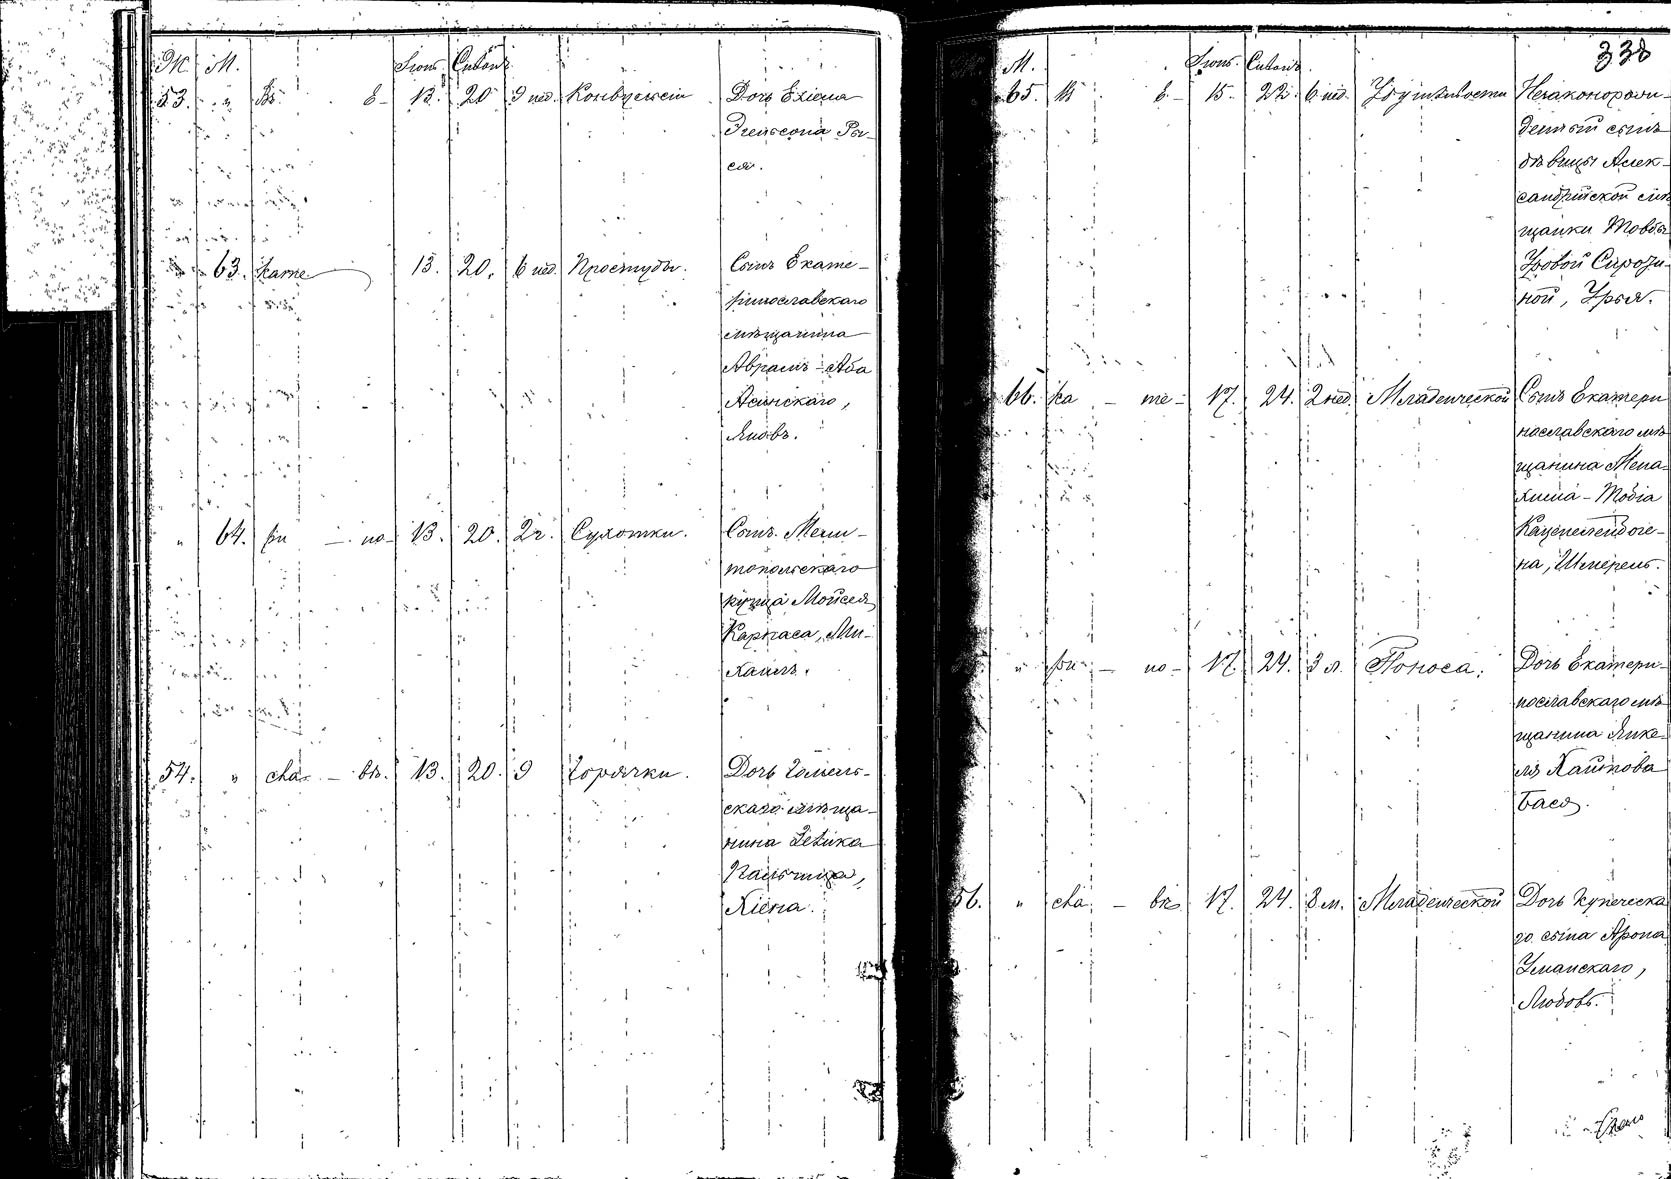 Ж. М. Іюнь. Сивонъ.
53. " Въ Е- 13. 20 9 нед. Конвулсіи ДочьЕхіеля
Эгельсона Ры-
ся.
63. кате 13. 20. 6 нед. Простуды. Сынъ Екате-
ринославскаго
мѣщанина
Аврамъ-Аба
Асинскаго,
Яковъ.
" 64. ри - но- 13. 20. 2 г. Сухотки. Сынъ Мели-
топольскаго
купца Мойсея
Карпаса, Ми-
хаилъ.
54. " сла - вѣ. 13. 20. 9 Горячки. Дочь Гомель-
скаго мѣща-
нина
Хіена.
338
М. Іюнь. Сивонъ.
65. Въ Е- 15. 22. 6 нед. Незаконорож-
денный сынъ
дѣвицы Алек-
сандрійской мѣ
щанки Товбы
ной, Урыя.
66. ка - те- 17. 24. 2 нед. Младенческой Сынъ Екатери
нославскаго мѣ
щанина Мена-
хима-Товіа
Каценеленбоге-
на, Шмерель.
" ри - но- 17. 24. 3 л. Поноса. Дочь Екатери-
нославскаго мѣ
щанина Янке-
ля Хайкова
Бася.
56. " сла - вѣ 17. 24. 8 м. Младенческой Дочь купеческа
го сына Арона
Уманскаго,
Любовь.